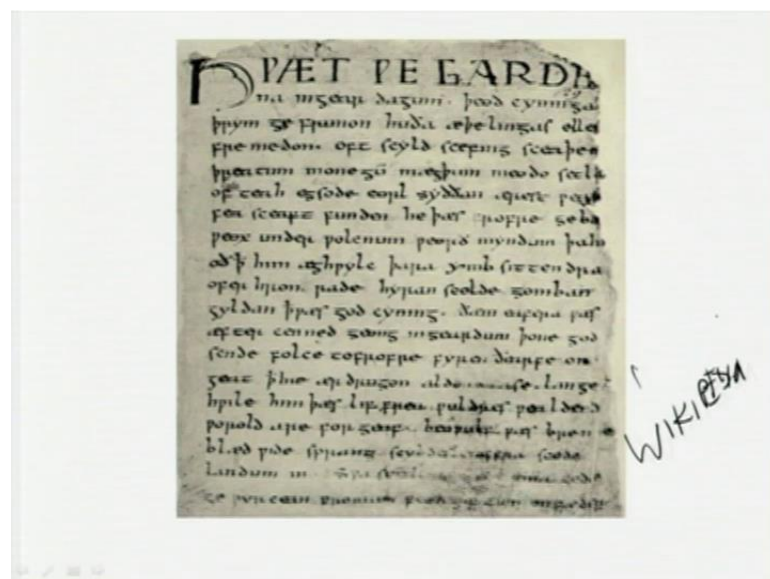 HǷÆT ǷE GARDE
na ingear dagum. þeod cyninga
þrym ge frunon huða æþelingas elle
fre medon. oft scyld scefing sceaþe
þreatum monegū mægþum meodo setla
of teah egsode eorl syððan ærest ƿear
fea sceaft funden he þæs frofre geba
ƿeox under ƿolcnum ƿeorð myndum þah
oð ꝥ him æghƿylc þara ymb sittendra
ofer hron rade hyran scolde gomban
gyldan þæt ƿæs god cyning. ðæm eafera ƿæs
æfter cenned geong ingeardum þone god
sende folce tofrofre fyren ðearfe on
geat ꝥ hie ær drugon aldor ase. lange
hƿile him þæs lif frea ƿuldres ƿealdend
ƿorold are for geaf. beoƿulf ƿæs breme
blæd ƿide sprang scyldes eafera scede
landum in. uma gode
ge ƿyrcean fromum feoh giftum on fæder
WIKIPEDIA